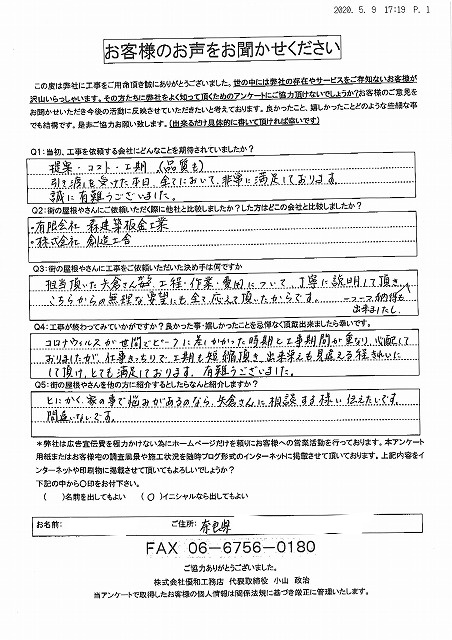 2020. 5. 9 17:19 P. 1
お客様のお声をお聞かせください
この度は弊社に工事をご用命頂き誠にありがとうございました。世の中には弊社の存在やサービスをご存知ないお客様が
沢山いらっしゃいます。その方たちに弊社をよく知って頂くためのアンケートにご協力頂けないでしょうか?お客様のご意見を
お聞かせいただき今後の活動に反映させていただきたいと考えております。良かったこと、嬉しかったことどのような些細な事
でも結構です。是非ご協力お願い致します。(出来るだけ具体的に書いて頂ければ幸いです)
Q1:当初、工事を依頼する会社にどんなことを期待されていましたか?
提案・コスト・工期 (品質も)
引き渡しを受けた本日、全てにおいて、非常に満足しております。
誠に有難うございました。
Q2:街の屋根やさんにご依頼いただく際に他社と比較しましたか?した方はどこの会社と比較しましたか?
・有限会社 森建築板金工業
・株式会社 創造工舎
Q3:街の屋根やさんに工事をご依頼いただいた決め手は何ですか
担当頂いた矢倉さんが、工程・作業・費用について、丁寧に説明して頂き、
こちらからの無理な要望にも全て応えて頂いたからです。 一つ一つ納得も
出来ましたし、
Q4:工事が終わってみていかがですか?良かった事・嬉しかったことを忌憚なく頂戴出来ましたら幸いです。
コロナウィルスが世間でピークに差しかかった時期と工事期間が重なり、心配して
おりましたが、仕事きっちりで、工期も短縮頂き、出来栄えも見違える程きれいに
して頂け、とても満足しております。有難うございました。
Q5:街の屋根やさんを他の方に紹介するとしたらなんと紹介しますか?
とにかく、家の事で悩みがあるのなら、矢倉さんに相談する様に伝えたいです。
間違いないです。
*弊社は広告宣伝費を極力かけない為にホームページだけを頼りにお客様への営業活動を行っております。本アンケート
用紙またはお客様宅の調査風景や施工状況を随時ブログ形式のインターネットに掲載させて頂いております。上記内容をイ
ンターネットや印刷物に掲載させて頂いてもよろしいでしょうか?
下記の中から〇印をお付下さい。
( )名前を出してもよい (〇)イニシャルなら出してもよい
お名前: ご住所: 奈良県
FAX 06-6756-0180
ご協力ありがとうございました。
株式会社優和工務店 代表取締役 小山 政治
当アンケートで取得したお客様の個人情報は関係法規に基づき厳正に管理いたします。